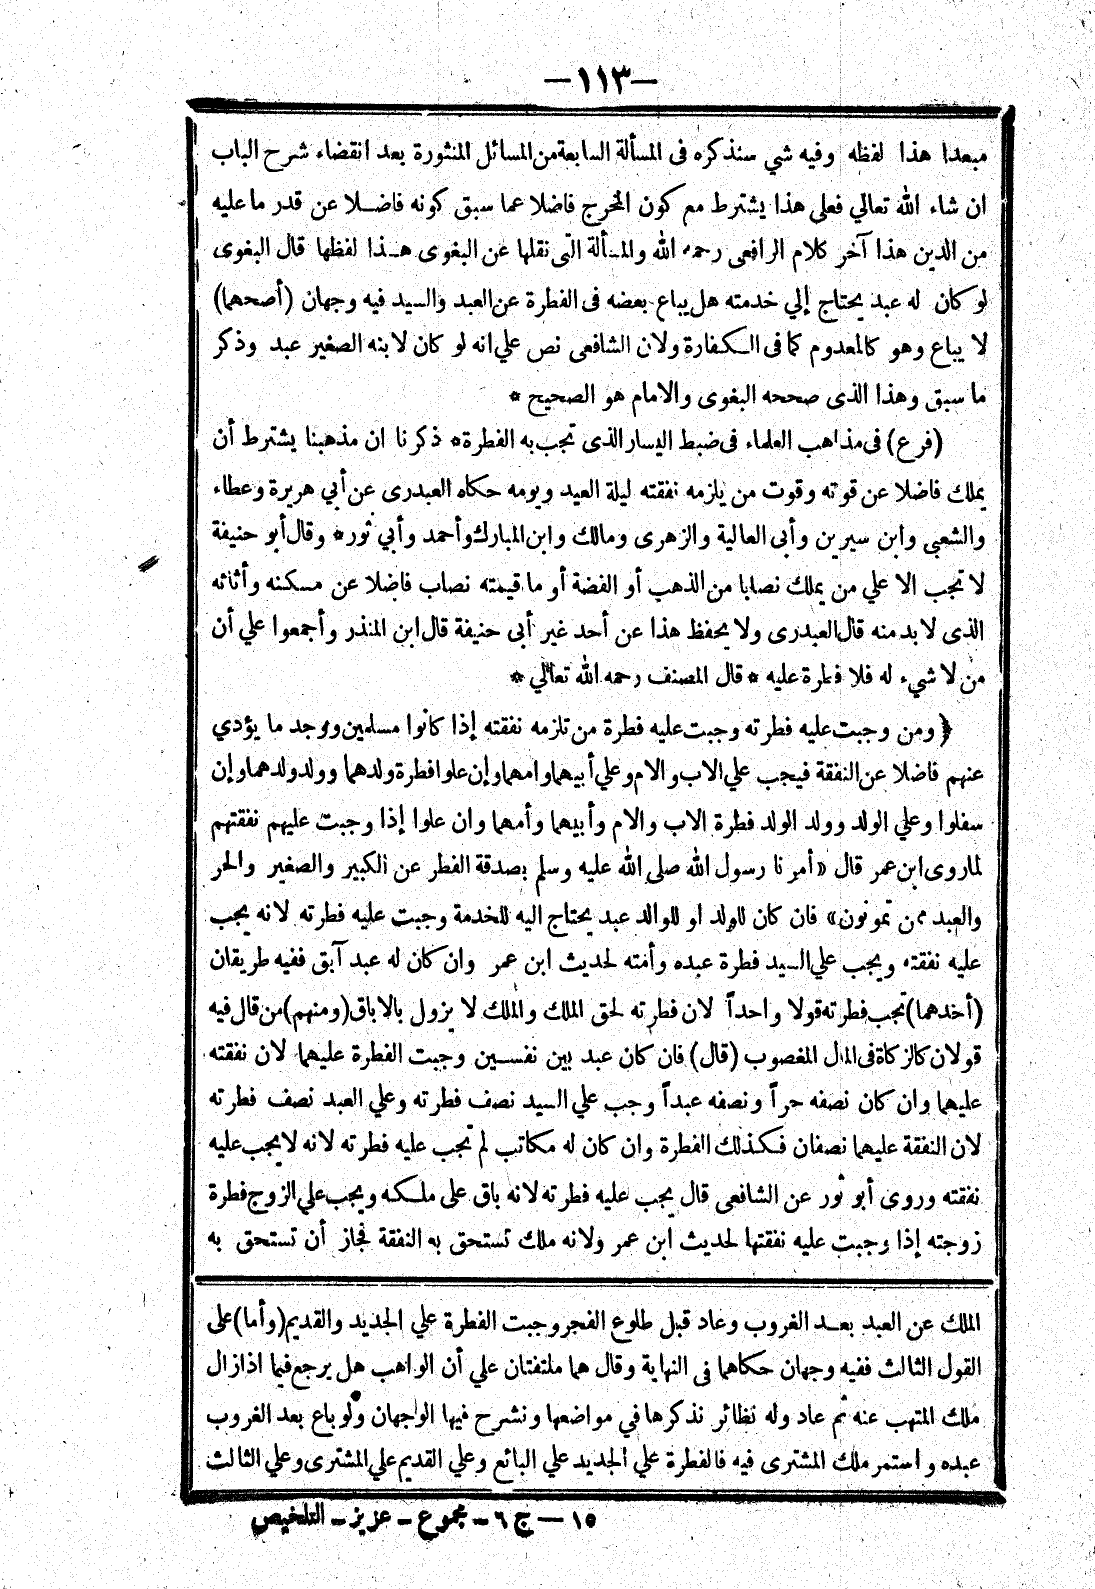 —١١٣—
مبعدا هذا لفظه وفيه شي سنذكره فى المسألة السابعة من المسائل المنثورة بعد انقضاء شرح الباب
ان شاء الله تعالي فعلى هذا يشترط مع كون المخرج فاضلا عما سبق كونه فاضلا عن قدر ما عليه
من الدين هذا آخر كلام الرافعى رحمه الله والمسألة التى نقلها عن البغوى هذا لفظها قال البغوى
لو كان له عبد يحتاج إلي خدمته هل يباع بعضه فى الفطرة عن العبد والسيد فيه وجهان (أصحهما)
لا يباع وهو كالمعدوم كما فى الكفارة ولان الشافعى نص علي انه لو كان لابنه الصغير عبد وذكر
ما سبق وهذا الذى صححه البغوى والامام هو الصحيح *
(فرع) فى مذاهب العلماء فى ضبط اليسار الذى تجب به الفطرة * ذكرنا ان مذهبنا يشترط أن
يملك فاضلا عن قوته وقوت من يلزمه نفقته ليلة العيد ويومه حكاه العبدرى عن أبي هريرة وعطاء
والشعبي وابن سيرين وأبى العالية والزهرى ومالك وابن المبارك وأحمد وأبي ثور * وقال أبو حنيفة
لا تجب الا علي من يملك نصابا من الذهب أو الفضة أو ما قيمته نصاب فاضلا عن مسكنه وأثاثه
الذى لا بد منه قال العبدرى ولا يحفظ هذا عن أحد غير أبى حنيفة قال ابن المنذر وأجمعوا علي أن
من لا شيء له فلا فطرة عليه * قال المصنف رحمه الله تعالي *
﴿ ومن وجبت عليه فطرته وجبت عليه فطرة من تلزمه نفقته إذا كانوا مسلمين ووجد ما يؤدي
عنهم فاضلا عن النفقة فيجب علي الاب والام وعلي أبيهما وامهما وإن علوا فطرة ولدهما وولد ولدهما وإن
سفلوا وعلي الولد وولد الولد فطرة الاب والام وأبيهما وأمهما وان علوا إذا وجبت عليهم نفقتهم
لما روى ابن عمر قال «أمرنا رسول الله صلى الله عليه وسلم بصدقة الفطر عن الكبير والصغير والحر
والعبد ممن تمونون» فان كان للولد او للوالد عبد يحتاج اليه للخدمة وجبت عليه فطرته لانه يجب
عليه نفقته ويجب علي السيد فطرة عبده وأمته لحديث ابن عمر وان كان له عبد آبق ففيه طريقان
(أحدهما) تجب فطرته قولا واحداً لان فطرته لحق الملك والملك لا يزول بالاباق (ومنهم) من قال فيه
قولان كالزكاة فى المال المغصوب (قال) فان كان عبد بين نفسين وجبت الفطرة عليهما لان نفقته
عليهما وان كان نصفه حراً ونصفه عبداً وجب علي السيد نصف فطرته وعلي العبد نصف فطرته
لان النفقة عليهما نصفان فكذلك الفطرة وان كان له مكاتب لم تجب عليه فطرته لانه لا يجب عليه
نفقته وروى أبو ثور عن الشافعى قال يجب عليه فطرته لانه باق على ملكه ويجب علي الزوج فطرة
زوجته إذا وجبت عليه نفقتها لحديث ابن عمر ولانه ملك تستحق به النفقة فجاز أن تستحق به
الملك عن العبد بعد الغروب وعاد قبل طلوع الفجر وجبت الفطرة علي الجديد والقديم (وأما) على
القول الثالث ففيه وجهان حكاهما فى النهاية وقال هما ملتفتان علي أن الواهب هل يرجع فيما اذا زال
ملك المتهب عنه ثم عاد وله نظائر نذكرها في مواضعها ونشرح فيها الوجهان ولو باع بعد الغروب
عبده واستمر ملك المشترى فيه فالفطرة علي الجديد علي البائع وعلي القديم علي المشترى وعلي الثالث
١٥ — ج ٦ – مجموع – عزيز – التلخيص